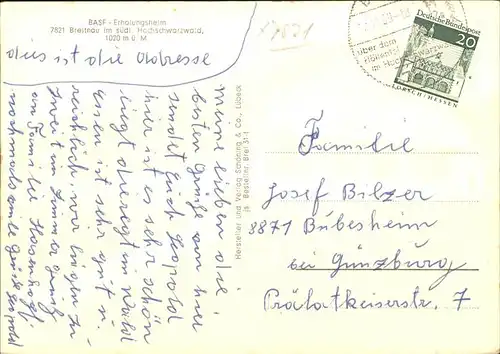 BASF - Erholungsheim
7821 Breitnau im südl. Hochschwarzwald,
1020 m ü. M.
dies ist die Adresse
meine lieben die
besten Grüße von hier
sendet Euch Leopold
hier ist es sehr schön
liegt direkt im Wald
essen ist sehr gut u.
reichlich, wir liegen zu
zweit im Zimmer Gruß
an Familie
nochmals viele Grüße Leopold
Hersteller und Verlag Schöning & Co., Lübeck
Bestellnr. Brei 31
über dem
Höllental
im Hochschwarzwald
Deutsche Bundespost
20
LORSCH/HESSEN
Familie
Josef Bilzer
8871 Bubesheim
bei Günzburg
Prälatkaiserstr. 7